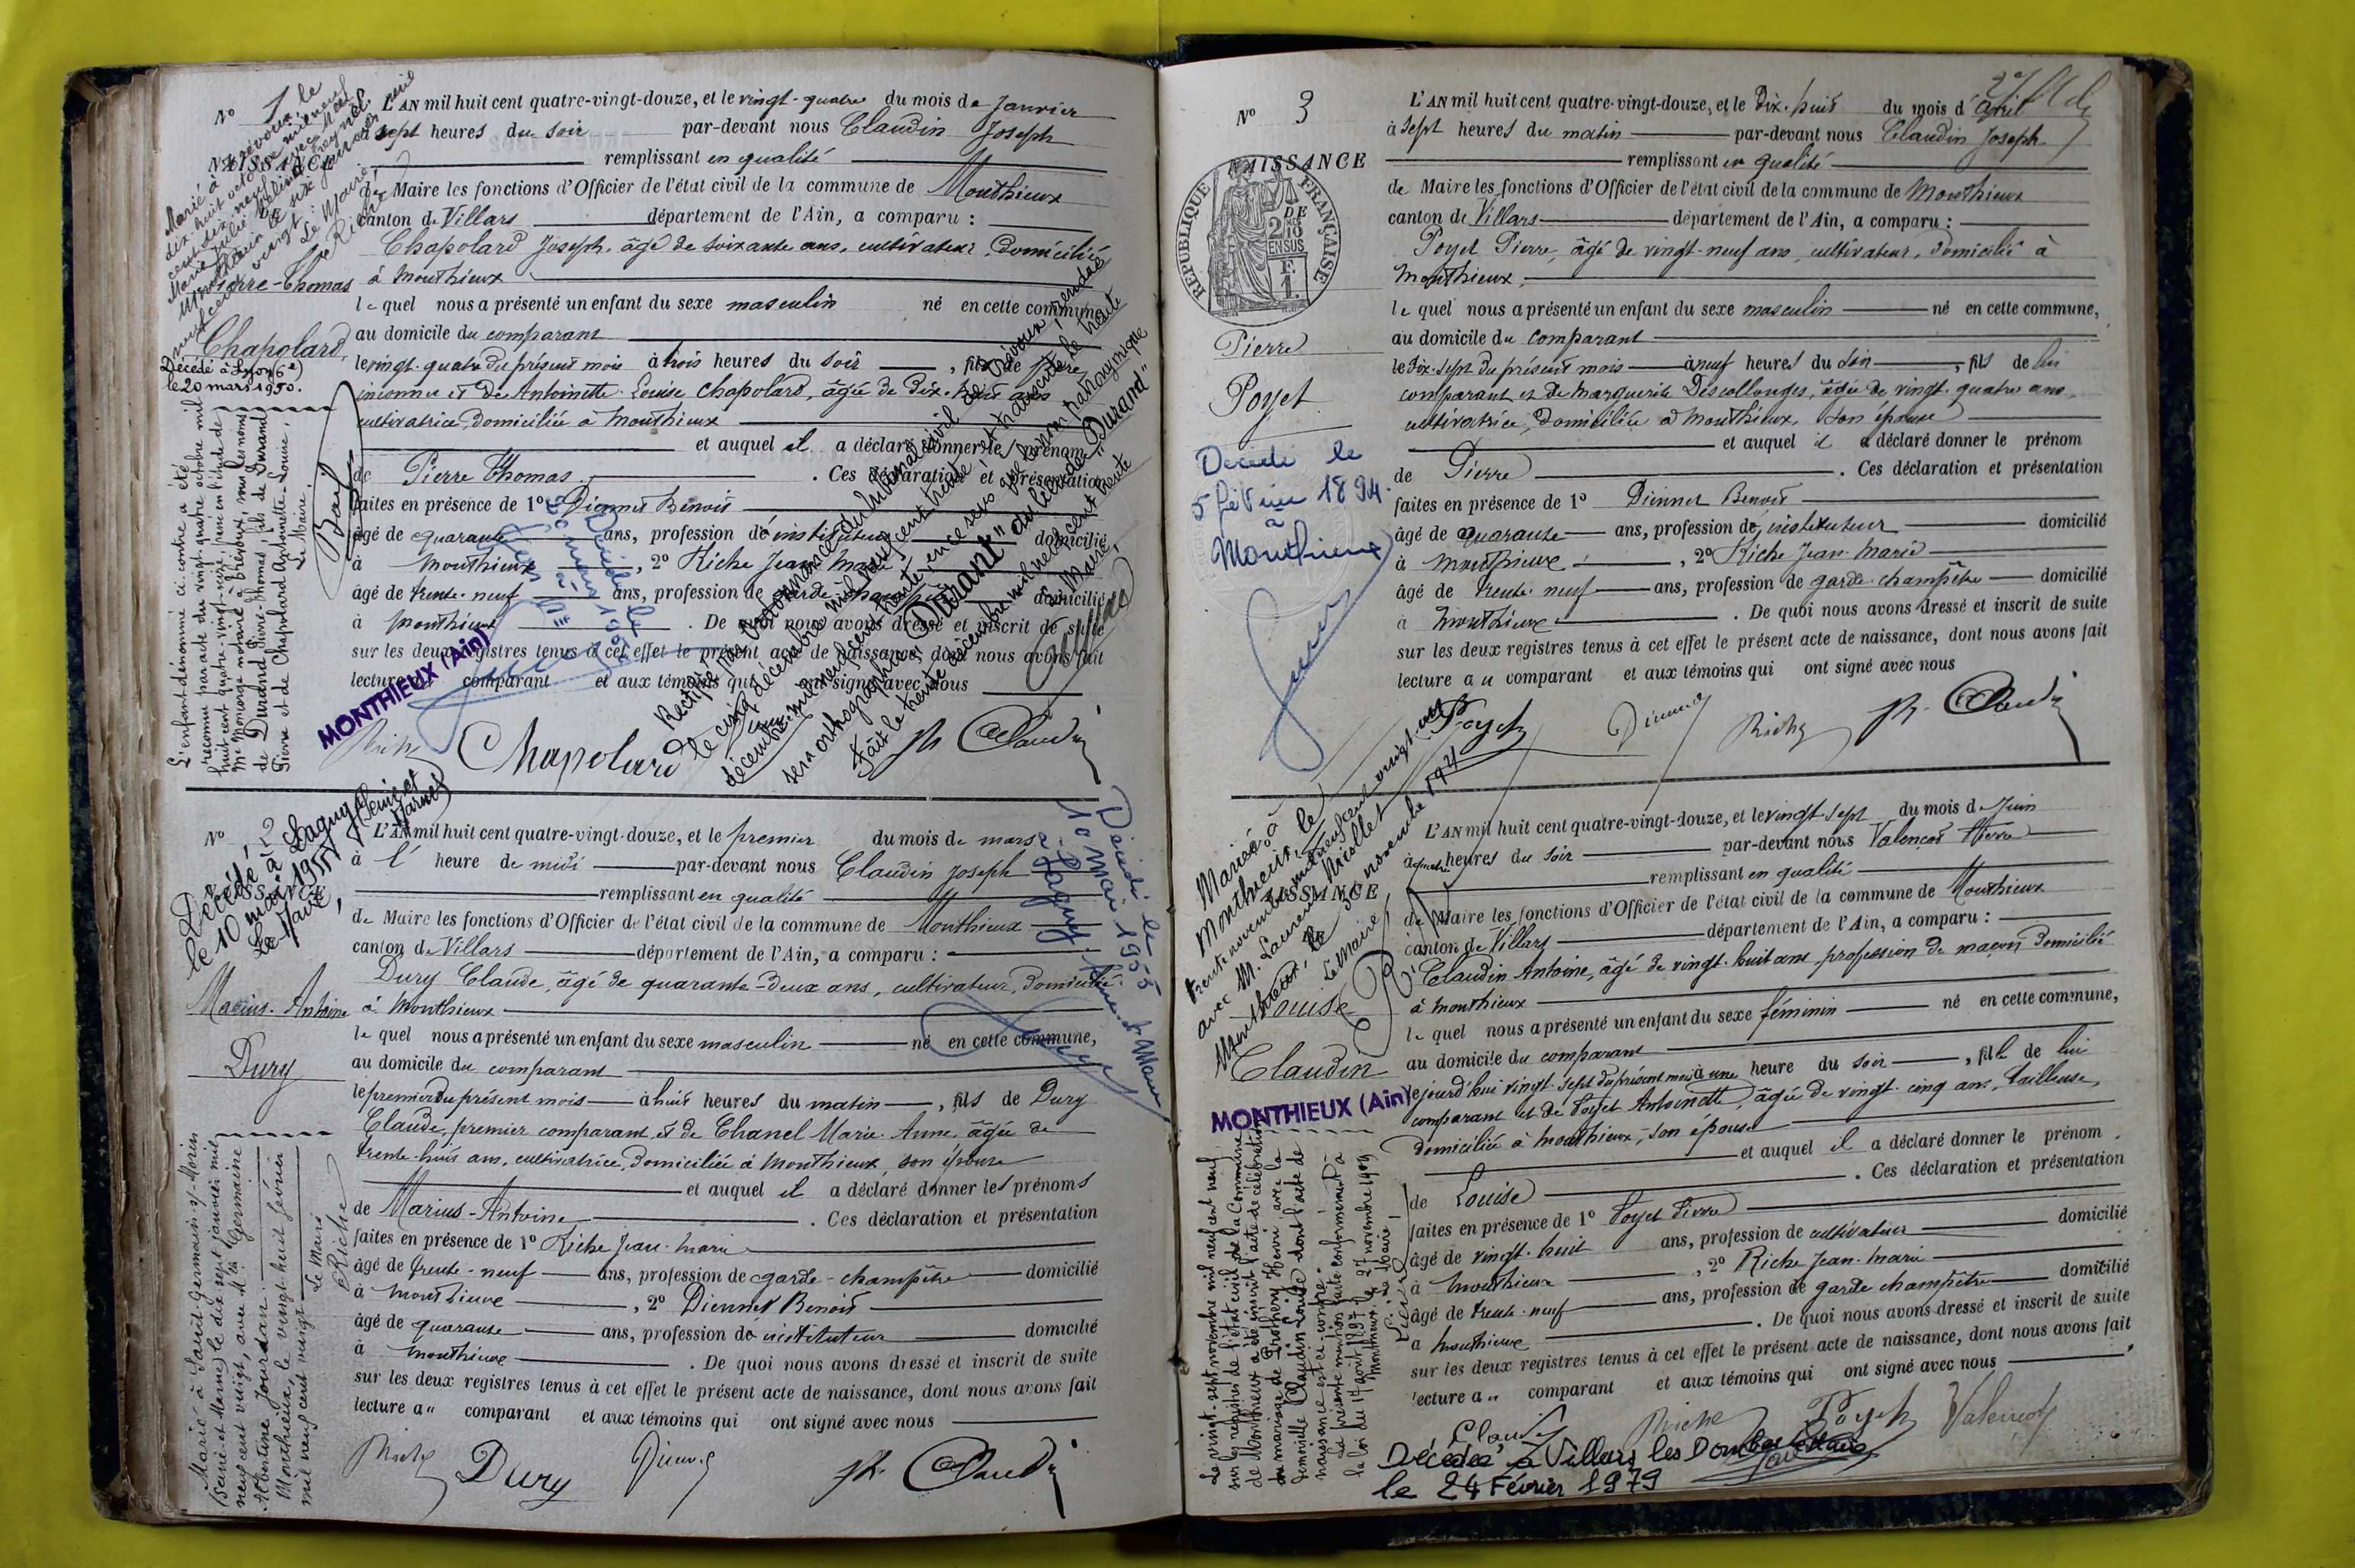 No 1
NAISSANCE
Pierre-Thomas
Chapolard
Décédé à Lyon (6e)
le 20 mars 1950.
L'AN mil huit cent quatre-vingt-douze, et le vingt-quatre du mois de Janvier
à sept heures du soir par-devant nous Claudin Joseph
remplissant en qualité
de Maire les fonctions d'Officier de l'état civil de la commune de Monthieux
canton de Villars département de l'Ain, a comparu :
Chapolard Joseph, âgé de soixante ans, cultivateur, domicilié
à Monthieux
lequel nous a présenté un enfant du sexe masculin né en cette commune
au domicile du comparant
le vingt-quatre du présent mois à trois heures du soir, fils de père
inconnu et de Antoinette Louise Chapolard, âgée de dix-huit ans
cultivatrice, domiciliée à Monthieux
et auquel il a déclaré donner les prénoms
de Pierre Thomas. Ces déclaration et présentation
faites en présence de 1o Diennet Benoit
âgé de quarante ans, profession d'instituteur domicilié
à Monthieux, 2o Riche Jean Marie
âgé de trente-neuf ans, profession de garde champêtre domicilié
à Monthieux. De quoi nous avons dressé et inscrit de suite
sur les deux registres tenus à cet effet le présent acte de naissance, dont nous avons fait
lecture au comparant et aux témoins qui ont signé avec nous
Riche Chapolard Jh Claudin
L'enfant dénommé ci-contre a été
reconnu par acte du vingt quatre octobre mil
huit cent quatre-vingt-
Me notaire à Trévoux, sous les noms
de Durand Pierre-Thomas, fils de Durand
Pierre et de Chapolard Antoinette-Louise,
Le Maire,
Rectifié par ordonnance du tribunal civil de Trévoux, rendue
le cinq décembre mil neuf cent trente et transcrite le trente
décembre mil neuf cent trente, en ce sens que le nom patronymique
sera orthographié "Durant" au lieu de "Durand"
Fait le trente décembre mil neuf cent trente
Le Maire,
MONTHIEUX (Ain)
No 2
Décédé à Lagny (Seine et Marne)
le 10 mai 1955
Le Maire,
Marius-Antoine
Dury
L'AN mil huit cent quatre-vingt-douze, et le premier du mois de mars
à l' heure de midi par-devant nous Claudin Joseph
remplissant en qualité
de Maire les fonctions d'Officier de l'état civil de la commune de Monthieux
canton de Villars département de l'Ain, a comparu :
Dury Claude, âgé de quarante-deux ans, cultivateur, domicilié
à Monthieux
lequel nous a présenté un enfant du sexe masculin né en cette commune,
au domicile du comparant
le premier du présent mois à huit heures du matin, fils de Dury
Claude, premier comparant, et de Chanel Marie-Anne, âgée de
trente-huit ans, cultivatrice, domiciliée à Monthieux, son épouse
et auquel il a déclaré donner les prénoms
de Marius-Antoine. Ces déclaration et présentation
faites en présence de 1o Riche Jean-Marie
âgé de trente-neuf ans, profession de garde-champêtre domicilié
à Monthieux, 2o Diennet Benoit
âgé de quarante ans, profession d'instituteur domicilié
à Monthieux. De quoi nous avons dressé et inscrit de suite
sur les deux registres tenus à cet effet le présent acte de naissance, dont nous avons fait
lecture au comparant et aux témoins qui ont signé avec nous
Riche Dury Diennet Jh Claudin
Marié à Saint-Germain s/-Morin
(Seine-et-Marne) le dix sept janvier mil
neuf cent vingt, avec Mlle Germaine
Albertine Jourdan.
Monthieux, le vingt-huit février
mil neuf cent vingt
Le Maire
Riche
Décédé le
10 Mai 1955
à Lagny, Seine et Marne
No 3
NAISSANCE
REPUBLIQUE FRANÇAISE
2 DES 10 EN SUS
F.
1.
Pierre
Poyet
Décédé le
5 février 1894
à
Monthieux
L'AN mil huit cent quatre-vingt-douze, et le dix-huit du mois d'Avril
à sept heures du matin par-devant nous Claudin Joseph
remplissant en qualité
de Maire les fonctions d'Officier de l'état civil de la commune de Monthieux
canton de Villars département de l'Ain, a comparu :
Poyet Pierre, âgé de vingt-neuf ans, cultivateur, domicilié à
Monthieux,
lequel nous a présenté un enfant du sexe masculin né en cette commune,
au domicile du comparant
le dix-sept du présent mois à neuf heures du soir, fils de lui
comparant et de Marguerite Descollonges, âgée de vingt-quatre ans,
cultivatrice, domiciliée à Monthieux, son épouse
et auquel il a déclaré donner le prénom
de Pierre. Ces déclaration et présentation
faites en présence de 1o Diennet Benoit
âgé de quarante ans, profession d'instituteur domicilié
à Monthieux, 2o Riche Jean-Marie
âgé de trente-neuf ans, profession de garde-champêtre domicilié
à Monthieux. De quoi nous avons dressé et inscrit de suite
sur les deux registres tenus à cet effet le présent acte de naissance, dont nous avons fait
lecture au comparant et aux témoins qui ont signé avec nous
Poyet Diennet Riche Jh Claudin
Mariée à
Monthieux, le
trente novembre mil neuf cent vingt-un
avec M. Laurent Miollet
Monthieux, le 30 novembre 1921
Le Maire,
NAISSANCE
Louise
Claudin
MONTHIEUX (Ain)
L'AN mil huit cent quatre-vingt-douze, et le vingt-sept du mois de Juin
à quatre heures du soir par-devant nous Valençot Pierre
remplissant en qualité
de Maire les fonctions d'Officier de l'état civil de la commune de Monthieux
canton de Villars département de l'Ain, a comparu :
Claudin Antoine, âgé de vingt-huit ans, profession de maçon domicilié
à Monthieux
lequel nous a présenté un enfant du sexe féminin né en cette commune,
au domicile du comparant
cejourd'hui vingt-sept du présent mois à une heure du soir, fille de lui
comparant et de Poyet Antoinette, âgée de vingt-cinq ans, tailleuse,
domiciliée à Monthieux, son épouse
et auquel il a déclaré donner le prénom
de Louise. Ces déclaration et présentation
faites en présence de 1o Poyet Pierre
âgé de vingt-huit ans, profession de cultivateur domicilié
à Monthieux, 2o Riche Jean-Marie
âgé de trente-neuf ans, profession de garde champêtre domicilié
à Monthieux. De quoi nous avons dressé et inscrit de suite
sur les deux registres tenus à cet effet le présent acte de naissance, dont nous avons fait
lecture au comparant et aux témoins qui ont signé avec nous
Claudin Riche Poyet Valençot
Le vingt-sept novembre mil neuf cent neuf
sur les registres de l'état civil de la Commune
de Monthieux a été inscrit l'acte de célébration
du mariage de Henri avec la
demoiselle Claudin Louise dont l'acte de
naissance est ci-contre.
La présente mention faite conformément à
la loi du 17 août 1897.
Monthieux le 27 novembre 1909
Le Maire,
Décédée à Villars les Dombes
le 24 Février 1979